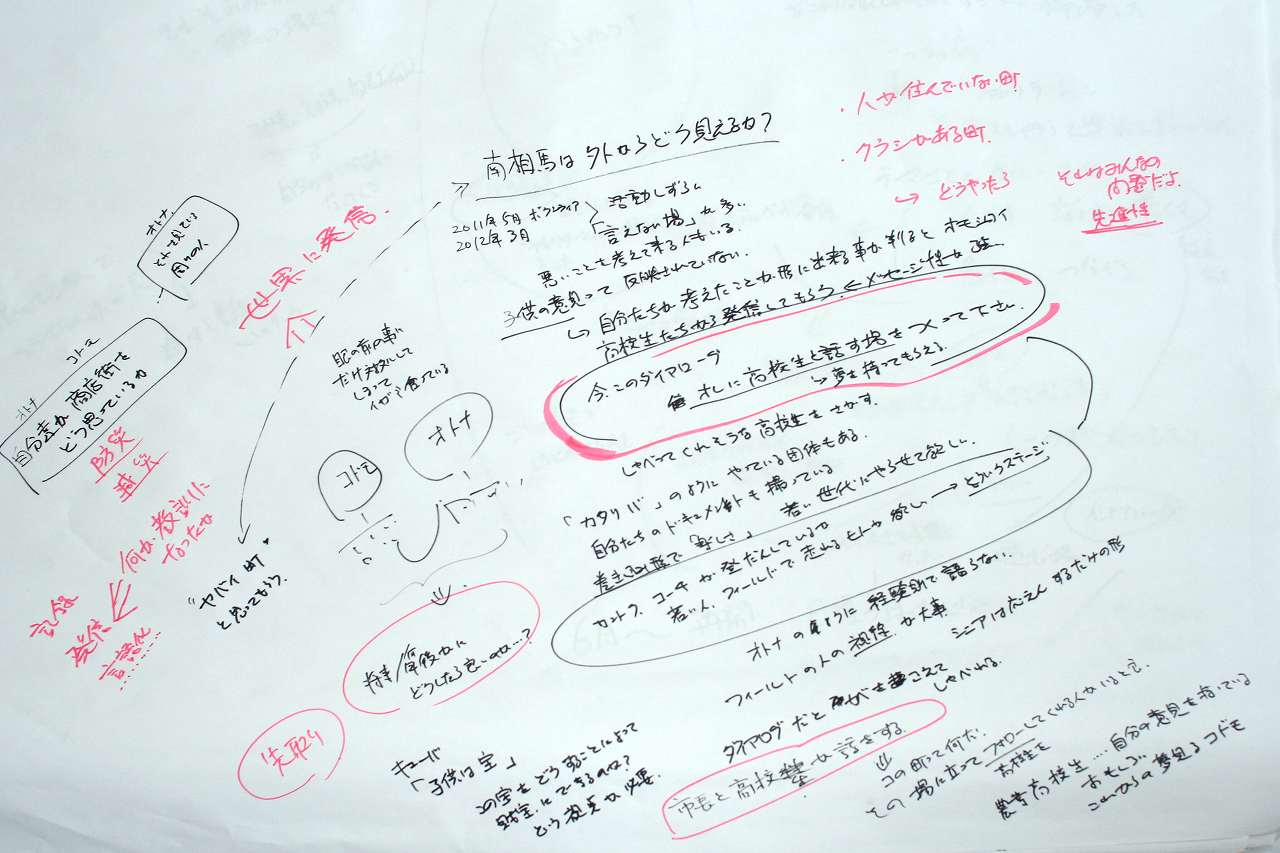 南相馬は外からどう見えるか?
2011年5月 ボランティア
2012年3月
活動しずらい
「言えない場」が多い
悪いことを考えて来る人もいる。
子供の意見って反映されていない。
自分たちが考えたことが形に出来る事が判ると オモシロイ
高校生たちから発信してもらう。← メッセージ性が強
今、このダイアローグ
オレに高校生と話す場をつくって下さい
夢を持ってもらえる。
しゃべってくれそうな高校生をさがす。
「カタリバ」のように やっている団体もある。
自分たちのドキュメントも撮っている
若い世代にやらせて欲しい
カントク、コーチが登だんしているが
若い人、フィールドで走れるヒトが欲しい → どういうステージ
オトナのように経験則で語らない。
フィールドの人の視線が大事
シニアは応えんするだけの形
ダイアログだと
こえて
しゃべれる。
市長と高校生が話をする。
⇓
コの町って何だ。
その場に立ってフォローしてくれる人がいると
高校生を
農業高校生…自分の意見を持っている
おもしろい
これからの夢見るコドモ
・人が住んでいない町
・クラシがある町
→ どうやったら
それはみんなの
先進性
世界に発信
オトナ
コドモ
オトナ
自分達が商店街を
どう思っているか
防災
減災
何が教訓に
なったか
記録
発信
言語化
"ヤバイ町"
と思ってもらう。
眼の前の事に
だけ対処して
しまって
コドモ
オトナ
⇓
将来/
どうしたら良いのか…?
先取り
キューバ
「子供は宝」
この宝をどうすることによって
にできるのか?
という視点が必要